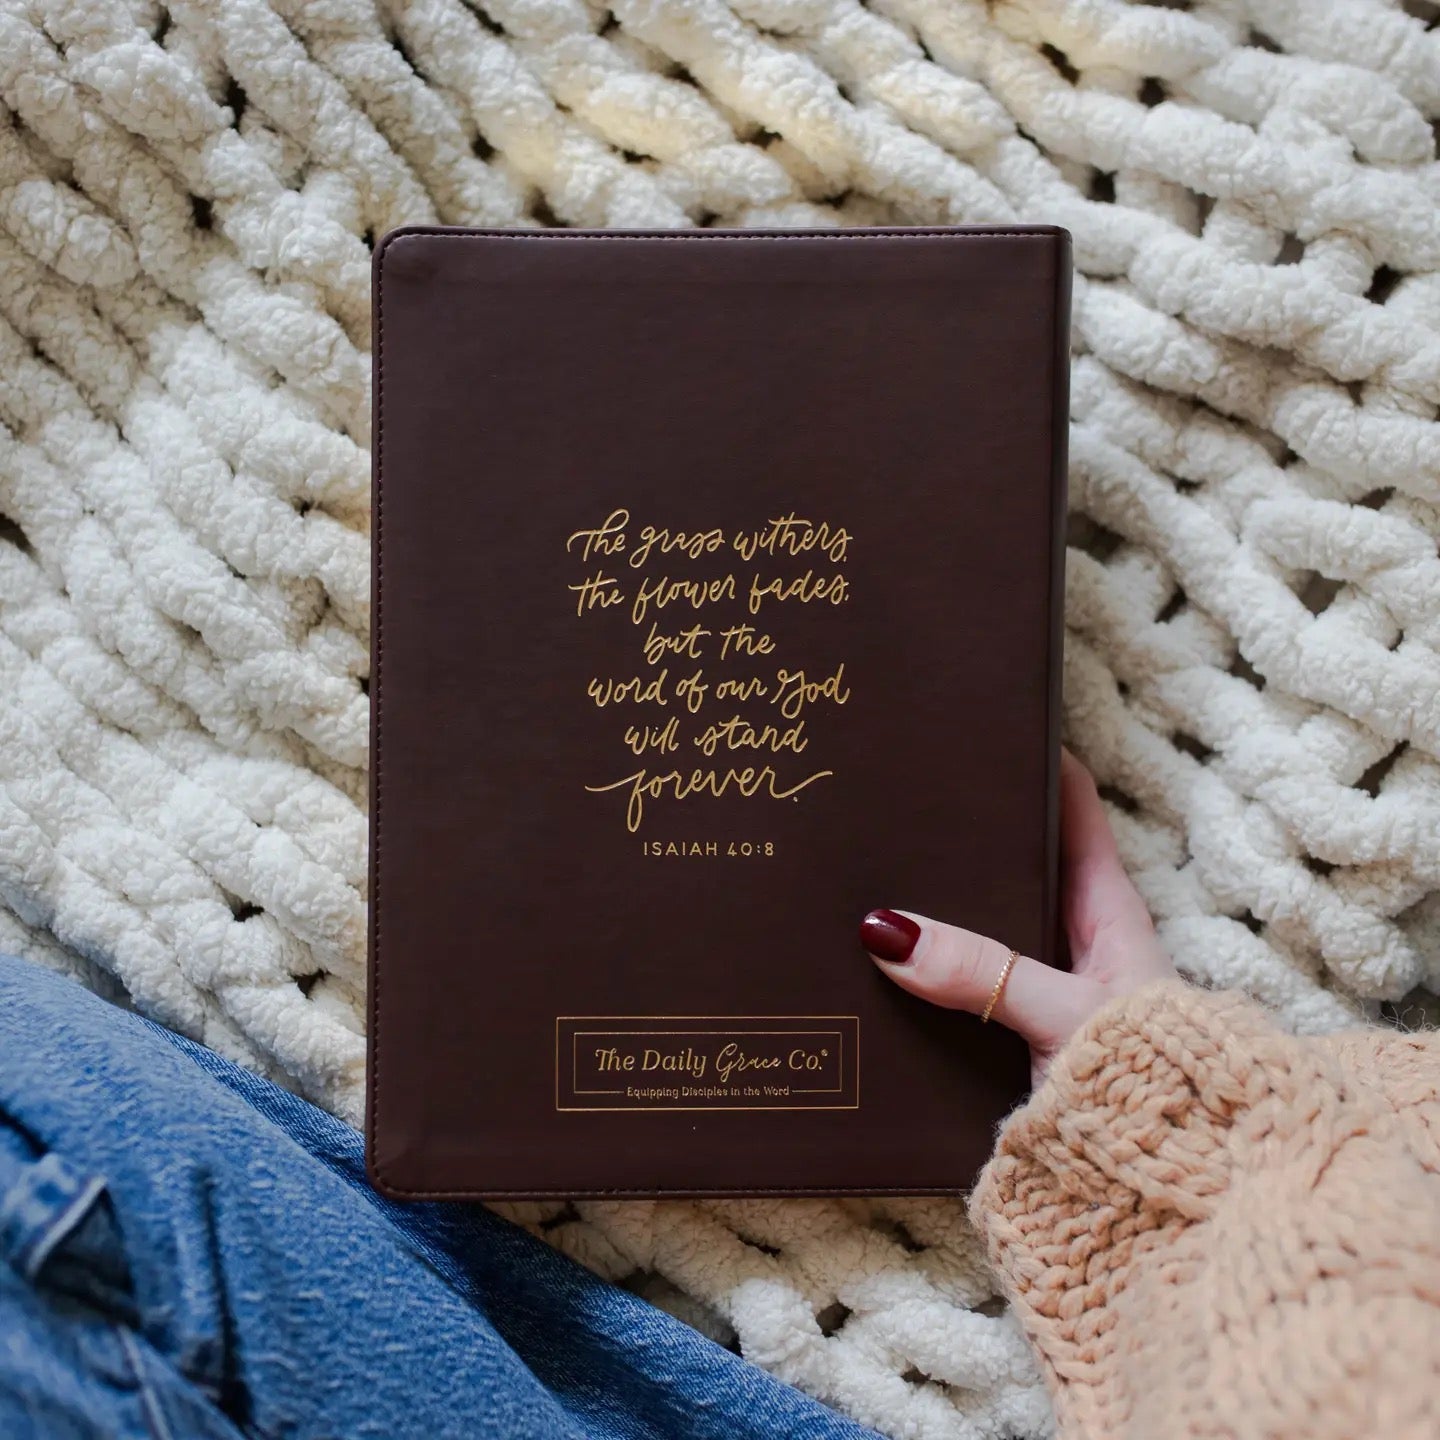 The grass withers,
the flower fades,
but the
word of our God
will stand
forever.
ISAIAH 40:8
The Daily Grace Co.®
Equipping Disciples in the Word